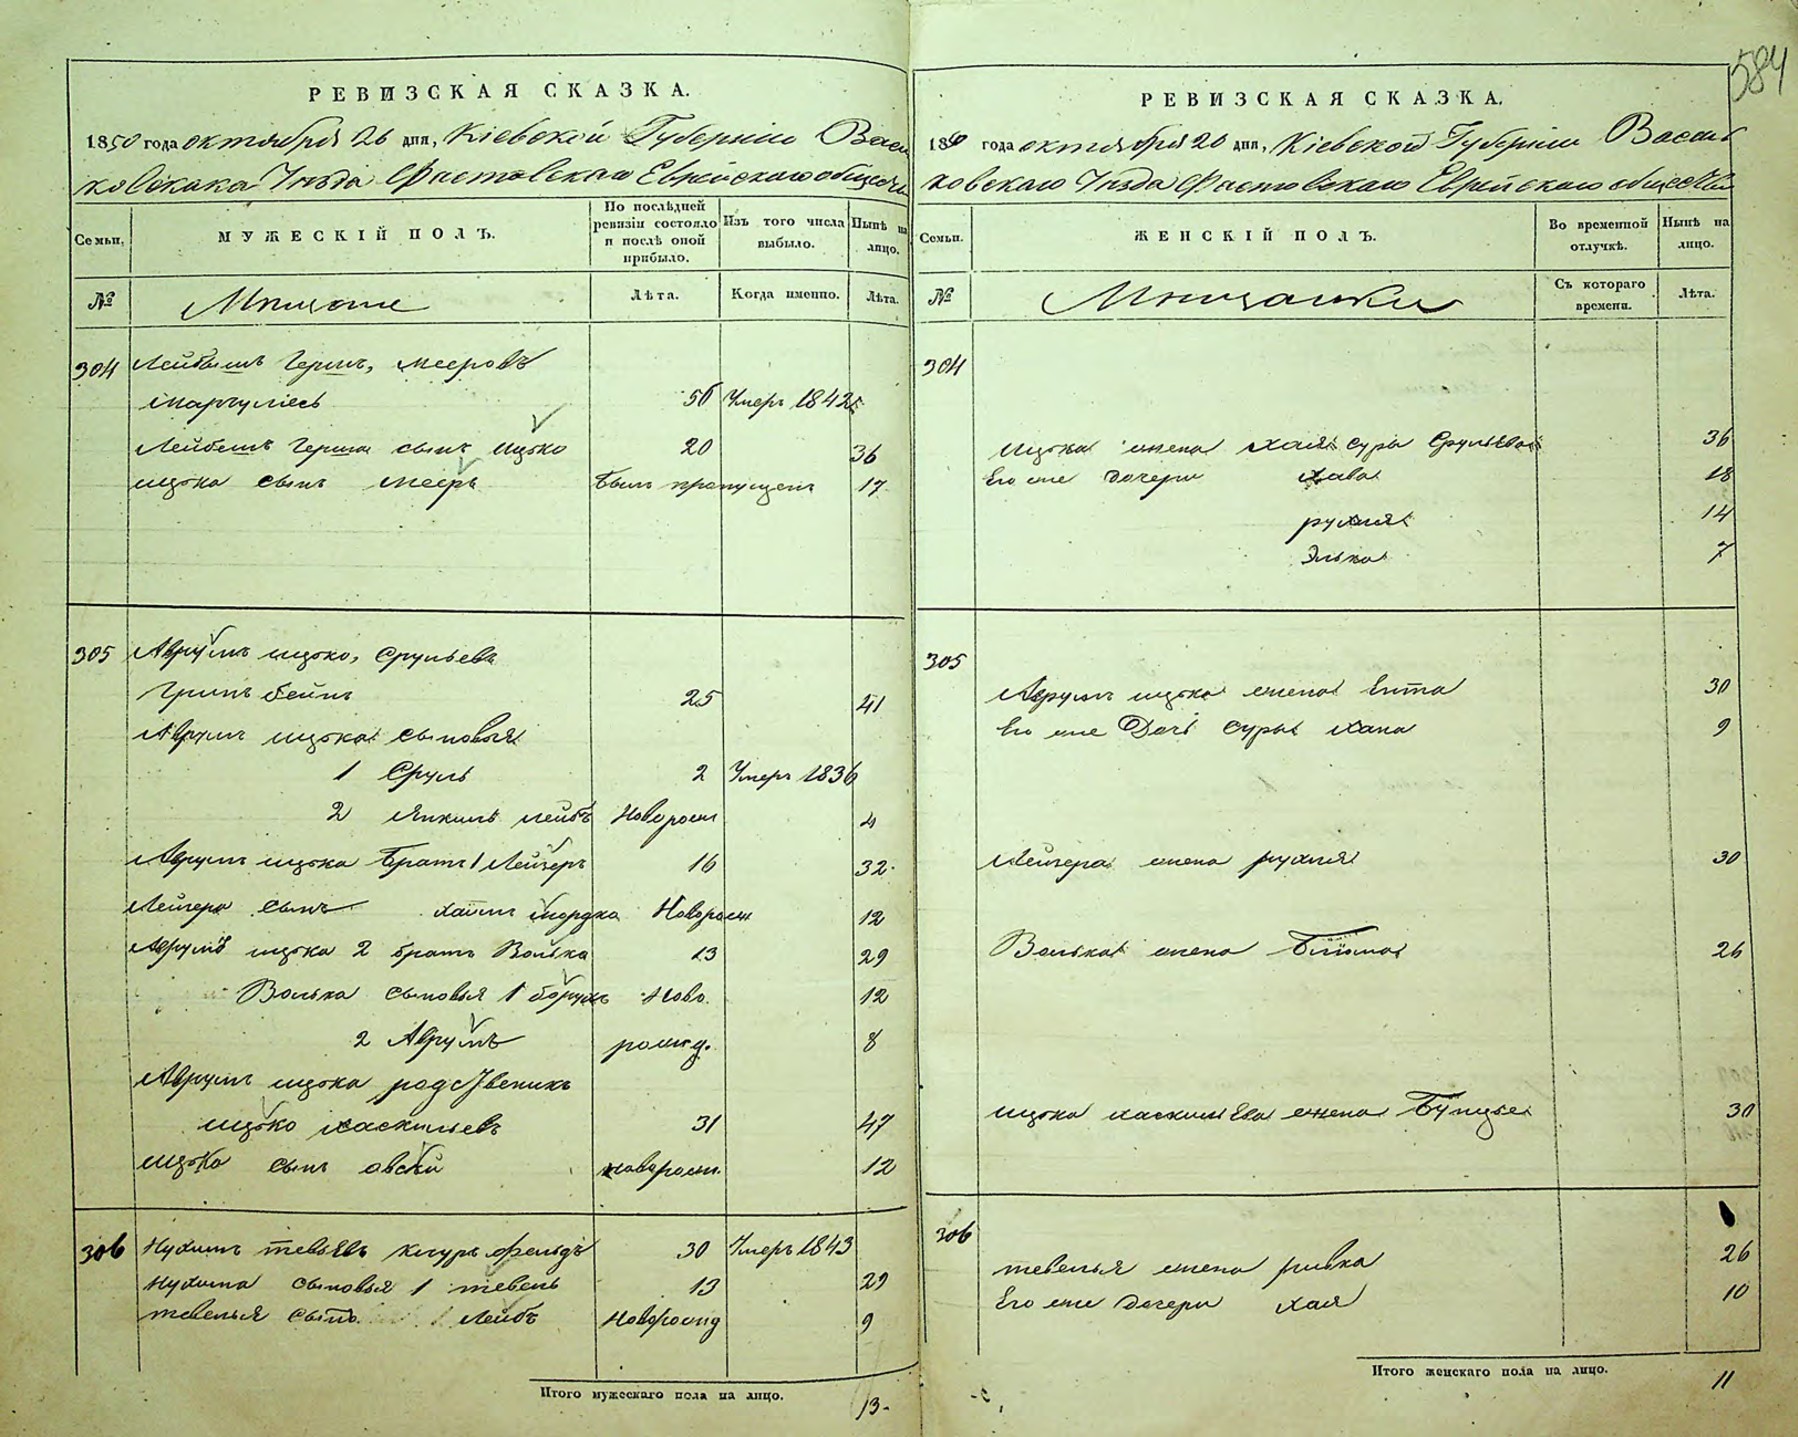 584
РЕВИЗСКАЯ СКАЗКА.
1850 года октября 26 дня, Кіевской Губерніи Васи
ковскаго Уѣзда Фастовскаго Еврейскаго общест
Семьи.
МУЖЕСКІЙ ПОЛЪ.
По послѣдней ревизіи состояло и послѣ оной прибыло.
Изъ того числа выбыло.
Нынѣ на лицо.
№
Мѣщане
Лѣта.
Когда именно.
Лѣта.
304 Лейбишъ Герш, Мееровъ
Маргулисъ 56 Умеръ 1842
Лейбишъ Герша сынъ Ицко 20 36
Ицка сынъ Мееръ Былъ пропущенъ 17
305 Аврумъ Ицко, Срульевъ
Грин бейнъ 25 41
Аврумъ Ицка сыновья
1 Сруль 2 Умеръ 1836
2 Янкель Лейбъ Новорожд 4
Аврумъ Ицка братъ 1 Лейзеръ 16 32
Лейзера сынъ Хаимъ Мордко Новорожд 12
Аврумъ Ицка 2 братъ Волько 13 29
Волька сыновья 1 Борухъ Ново 12
2 Аврумъ рожд. 8
Аврумъ Ицка родственикъ
Ицко Хаскилевъ 31 47
Ицка сынъ Овсей новорожд. 12
306 Нухимъ Тевьевъ Фельдъ 30 Умеръ 1843
Нухима сыновья 1 Тевель 13 29
Тевелья сынъ 1 Лейбъ Новорожд 9
Итого мужескаго пола на лицо. 13
РЕВИЗСКАЯ СКАЗКА.
1850 года октября 26 дня, Кіевской Губерніи Василь
ковскаго Уѣзда Фастовскаго Еврейскаго общества
Семьи.
ЖЕНСКІЙ ПОЛЪ.
Во временной отлучкѣ.
Нынѣ на лицо.
№
Мѣщанки
Съ котораго времени.
Лѣта.
304
Ицка жена Хая Сура Срульева 36
Его же дочери Хава 18
Рухля 14
Элька 7
305
Аврумъ Ицка жена Ента 30
Его же Дочь Сура Хана 9
Лейзера жена Рухля 30
Волька жена Блюма 26
Ицка Хаскилева жена 30
306
Тевелья жена Ривка 26
Его же дочери Хая 10
Итого женскаго пола на лицо. 11